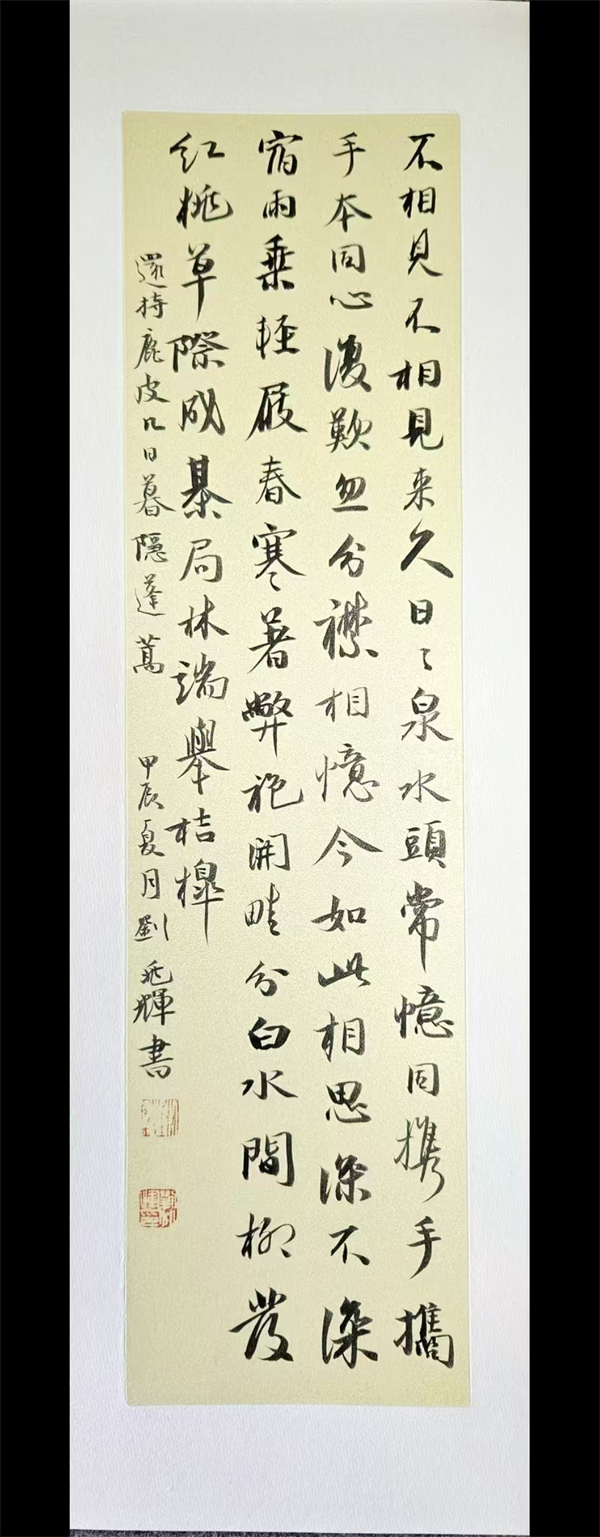 不相見不相見来久日々泉水頭常憶同携手攜
手本同心復歎忽分襟相憶今如此相思深不深
宿雨乘輕屐春寒著弊袍開畦分白水間柳發
红桃草際成棊局林端舉桔槔
還持鹿皮几日暮隱蓬蒿 甲辰夏月劉兆輝書